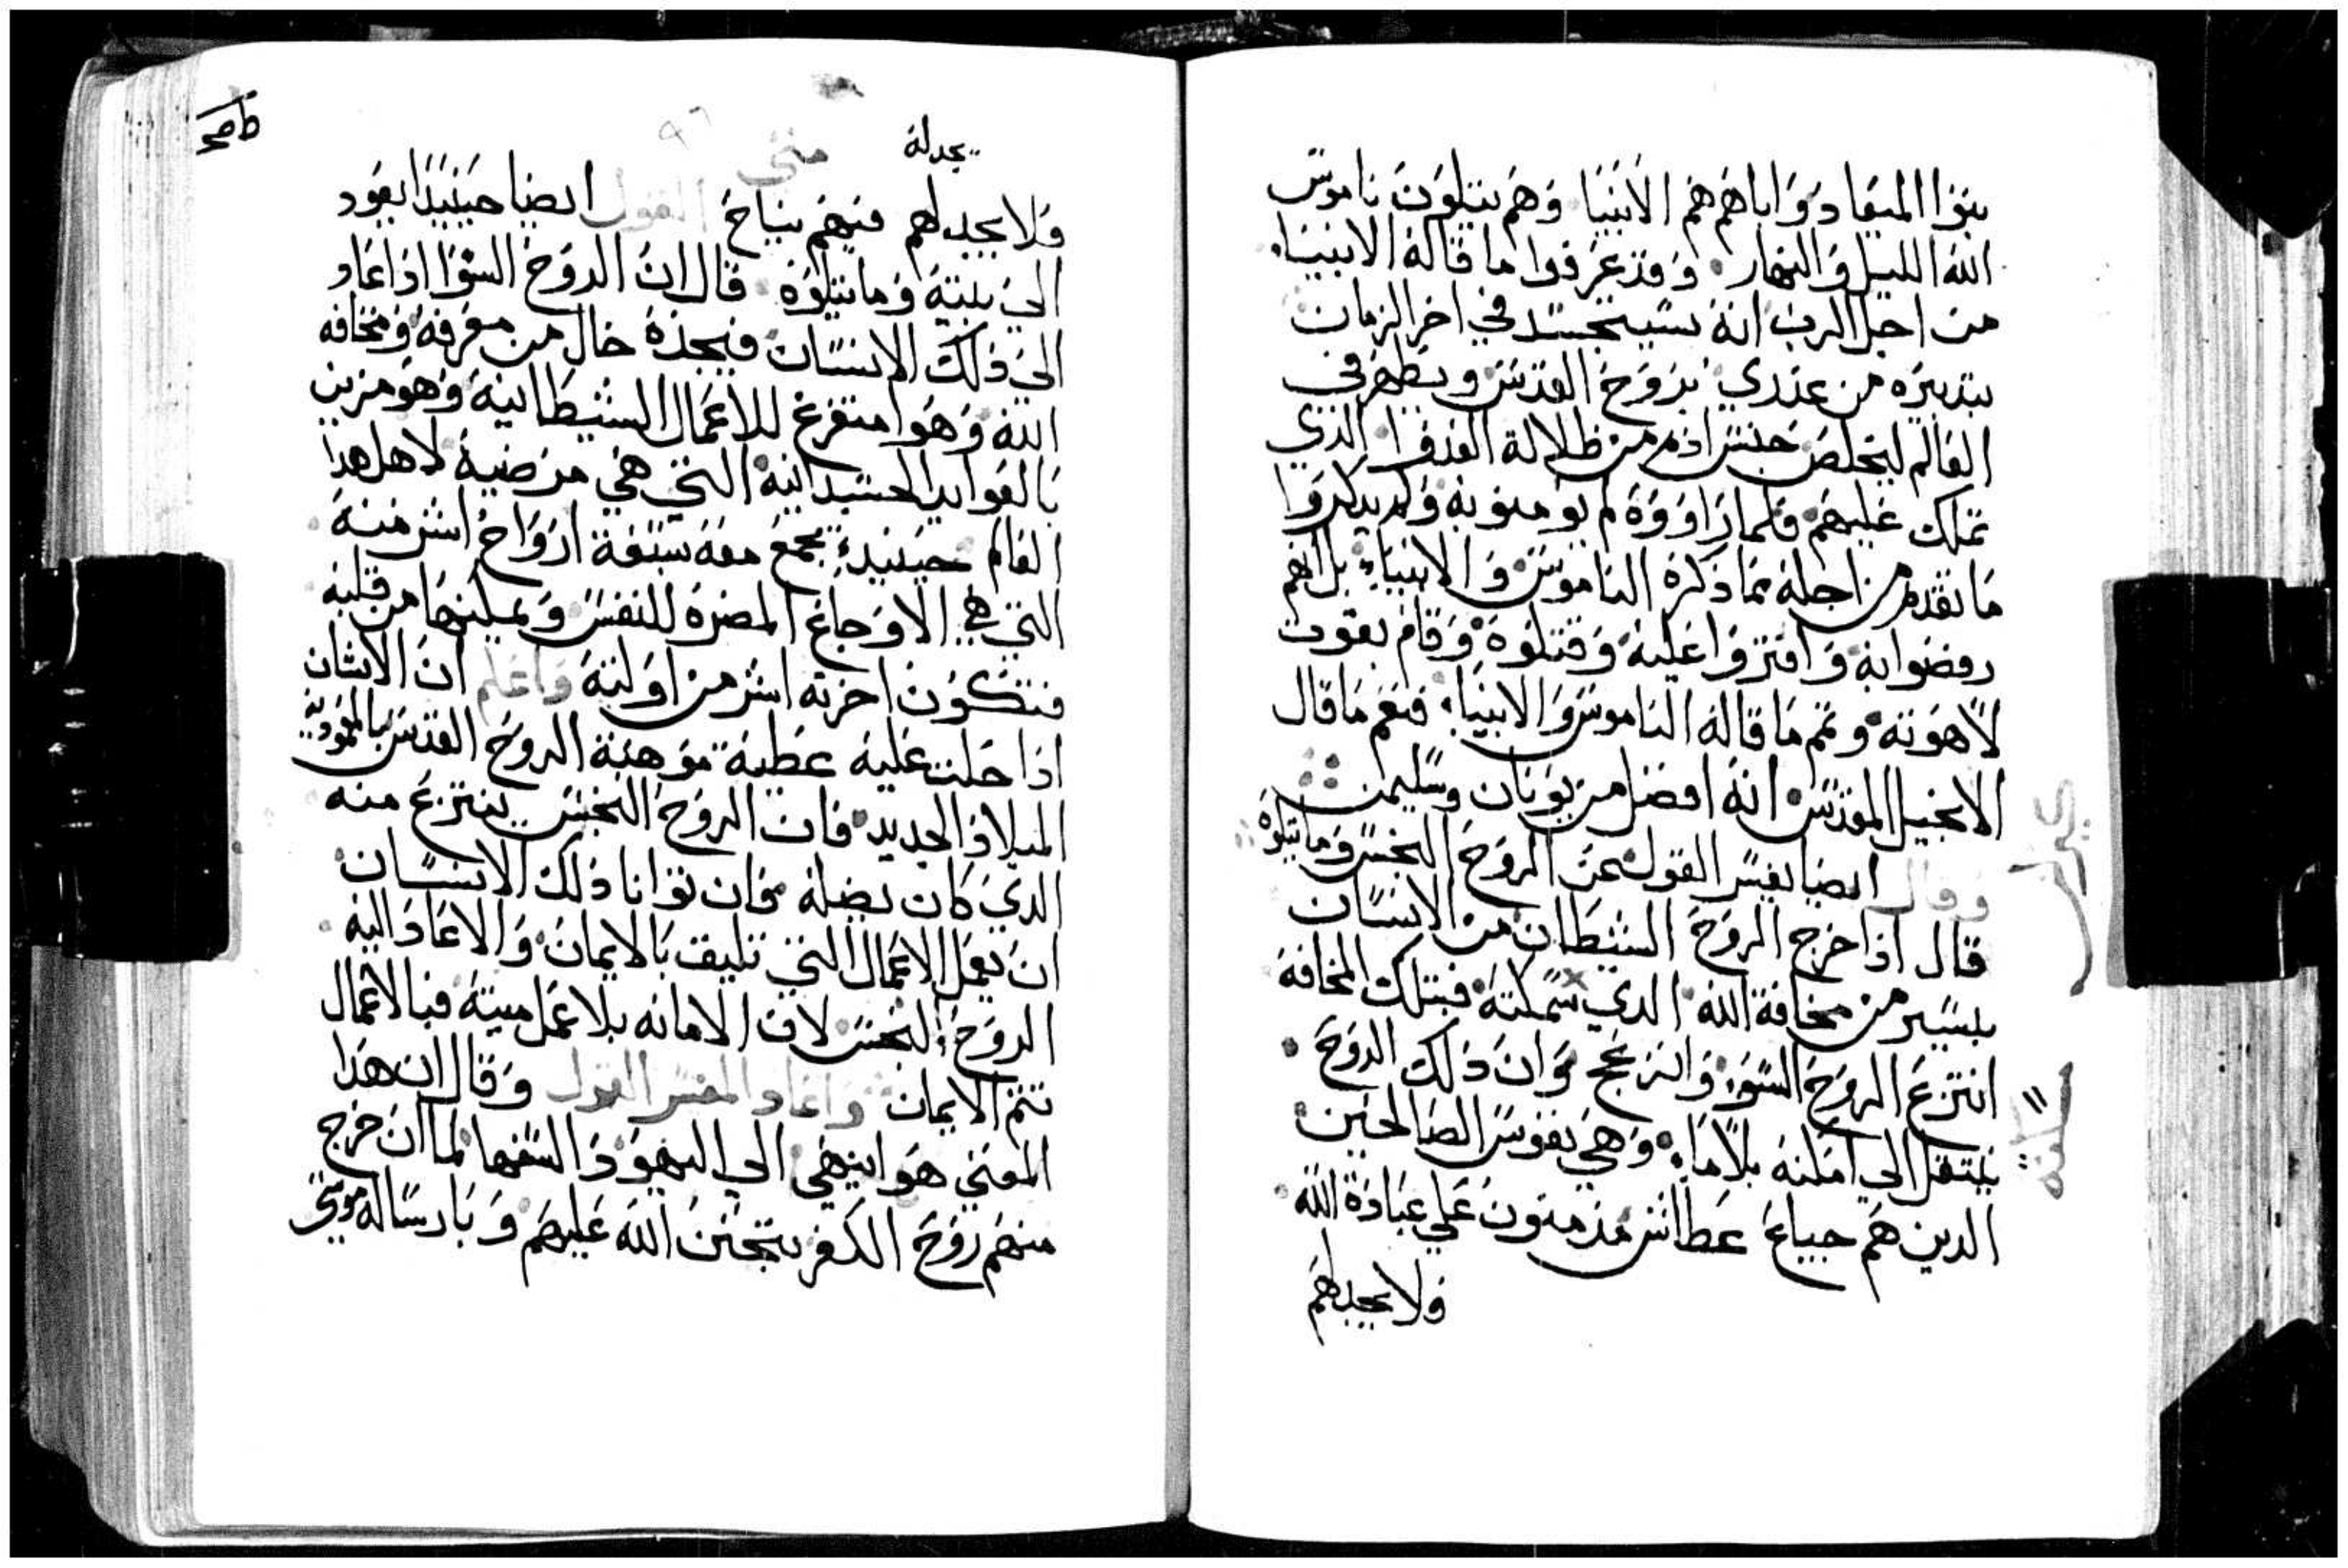 بنوا الميعاد وَاباهم هم الانبيا وهم يتلون ناموس
الله الليل والنهار وقد عرفوا ما قاله الانبياء
من اجل الرب انه سيتجسد في اخر الزمان
بتدبيره من عذري بروح القدس ويظهر في
العالم ليخلص جنس ادم من ظلالة العدوا الدي
تملك عليهم فلما راووه لم يومنو به ولم يدكروا
ما تقدم من اجله مما دكره الناموس والانبياء بل انهم
رفضوا به وافتروا عليه وقتلوه وقام بقوت
لاهوته وتمم ما قاله الناموس والانبياء فنعم ما قال
الانجيل المقدس انه افضل من يونان وسليمن
وقال ايضا يفسر القول عن الروح النجس وما يتلوه
قال اذا خرج الروح الشيطان من الانسان
بيسير من مخافة الله الدي سكنته فبتلك المخافه
انتزع الروح السوء وانزعج وان ذلك الروح
ينتقل الي امكنه بلا ماء وهي نفوس الصالحين
الدين هم جياع عطاش مدمنون علي عبادة الله
ولا يجد لهم
سكنته
يجد له
متى
٩٦
ولا يجد لهم فيهم نياح القول ايضا حينيدا يعود
الي بيته وما يتلوه قال ان الروح السوا اذا عاد
الي ذلك الانسان فيجده خال من معرفه ومخافه
الله وهوا متفرغ للاعمال الشيطانيه وهو مزين
بالفوايد الجسدانيه التي هي مرضية لاهل هدا
العالم حينيد يجمع معه سبعة ارواح اشر منه
التي هي الاوجاع المضره للنفس ويمكنها من قلبه
فتكون اخرته اشر من اوليته واعلم ان الانسان
اذا حلت عليه عطية موهبة الروح القدس بالمعموديه
الميلاد الجديد فان الروح النجس ينتزع منه
الدي كان يضله فان توانا ذلك الانسان
ان يعمل الاعمال التي تليق بالايمان والا عاد اليه
الروح النجس لان الامانه بلا عمل ميتة فبالاعمال
تتم الايمان واعاد المفسر القول وقال ان هذا
المعني هو اينهي الي اليهود السفها لما ان خرج
منهم روح الكفر بتحنن الله عليهم وبارساله موسي